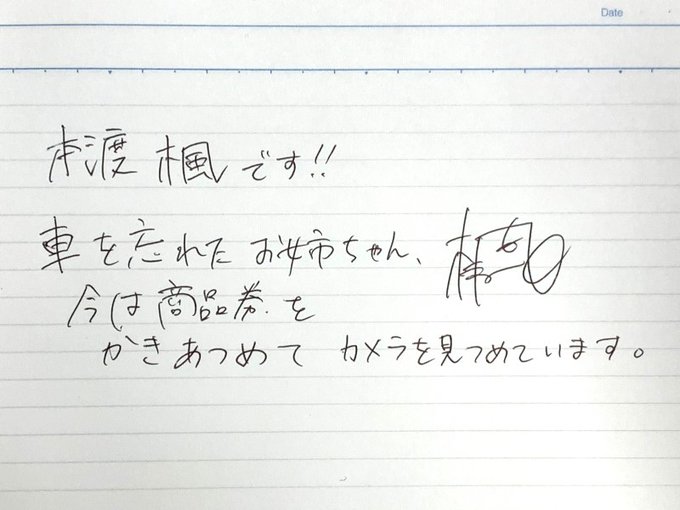 Date
本渡 楓です!!
車を忘れたお姉ちゃん、
今は商品券を
かきあつめて カメラを見つめています。